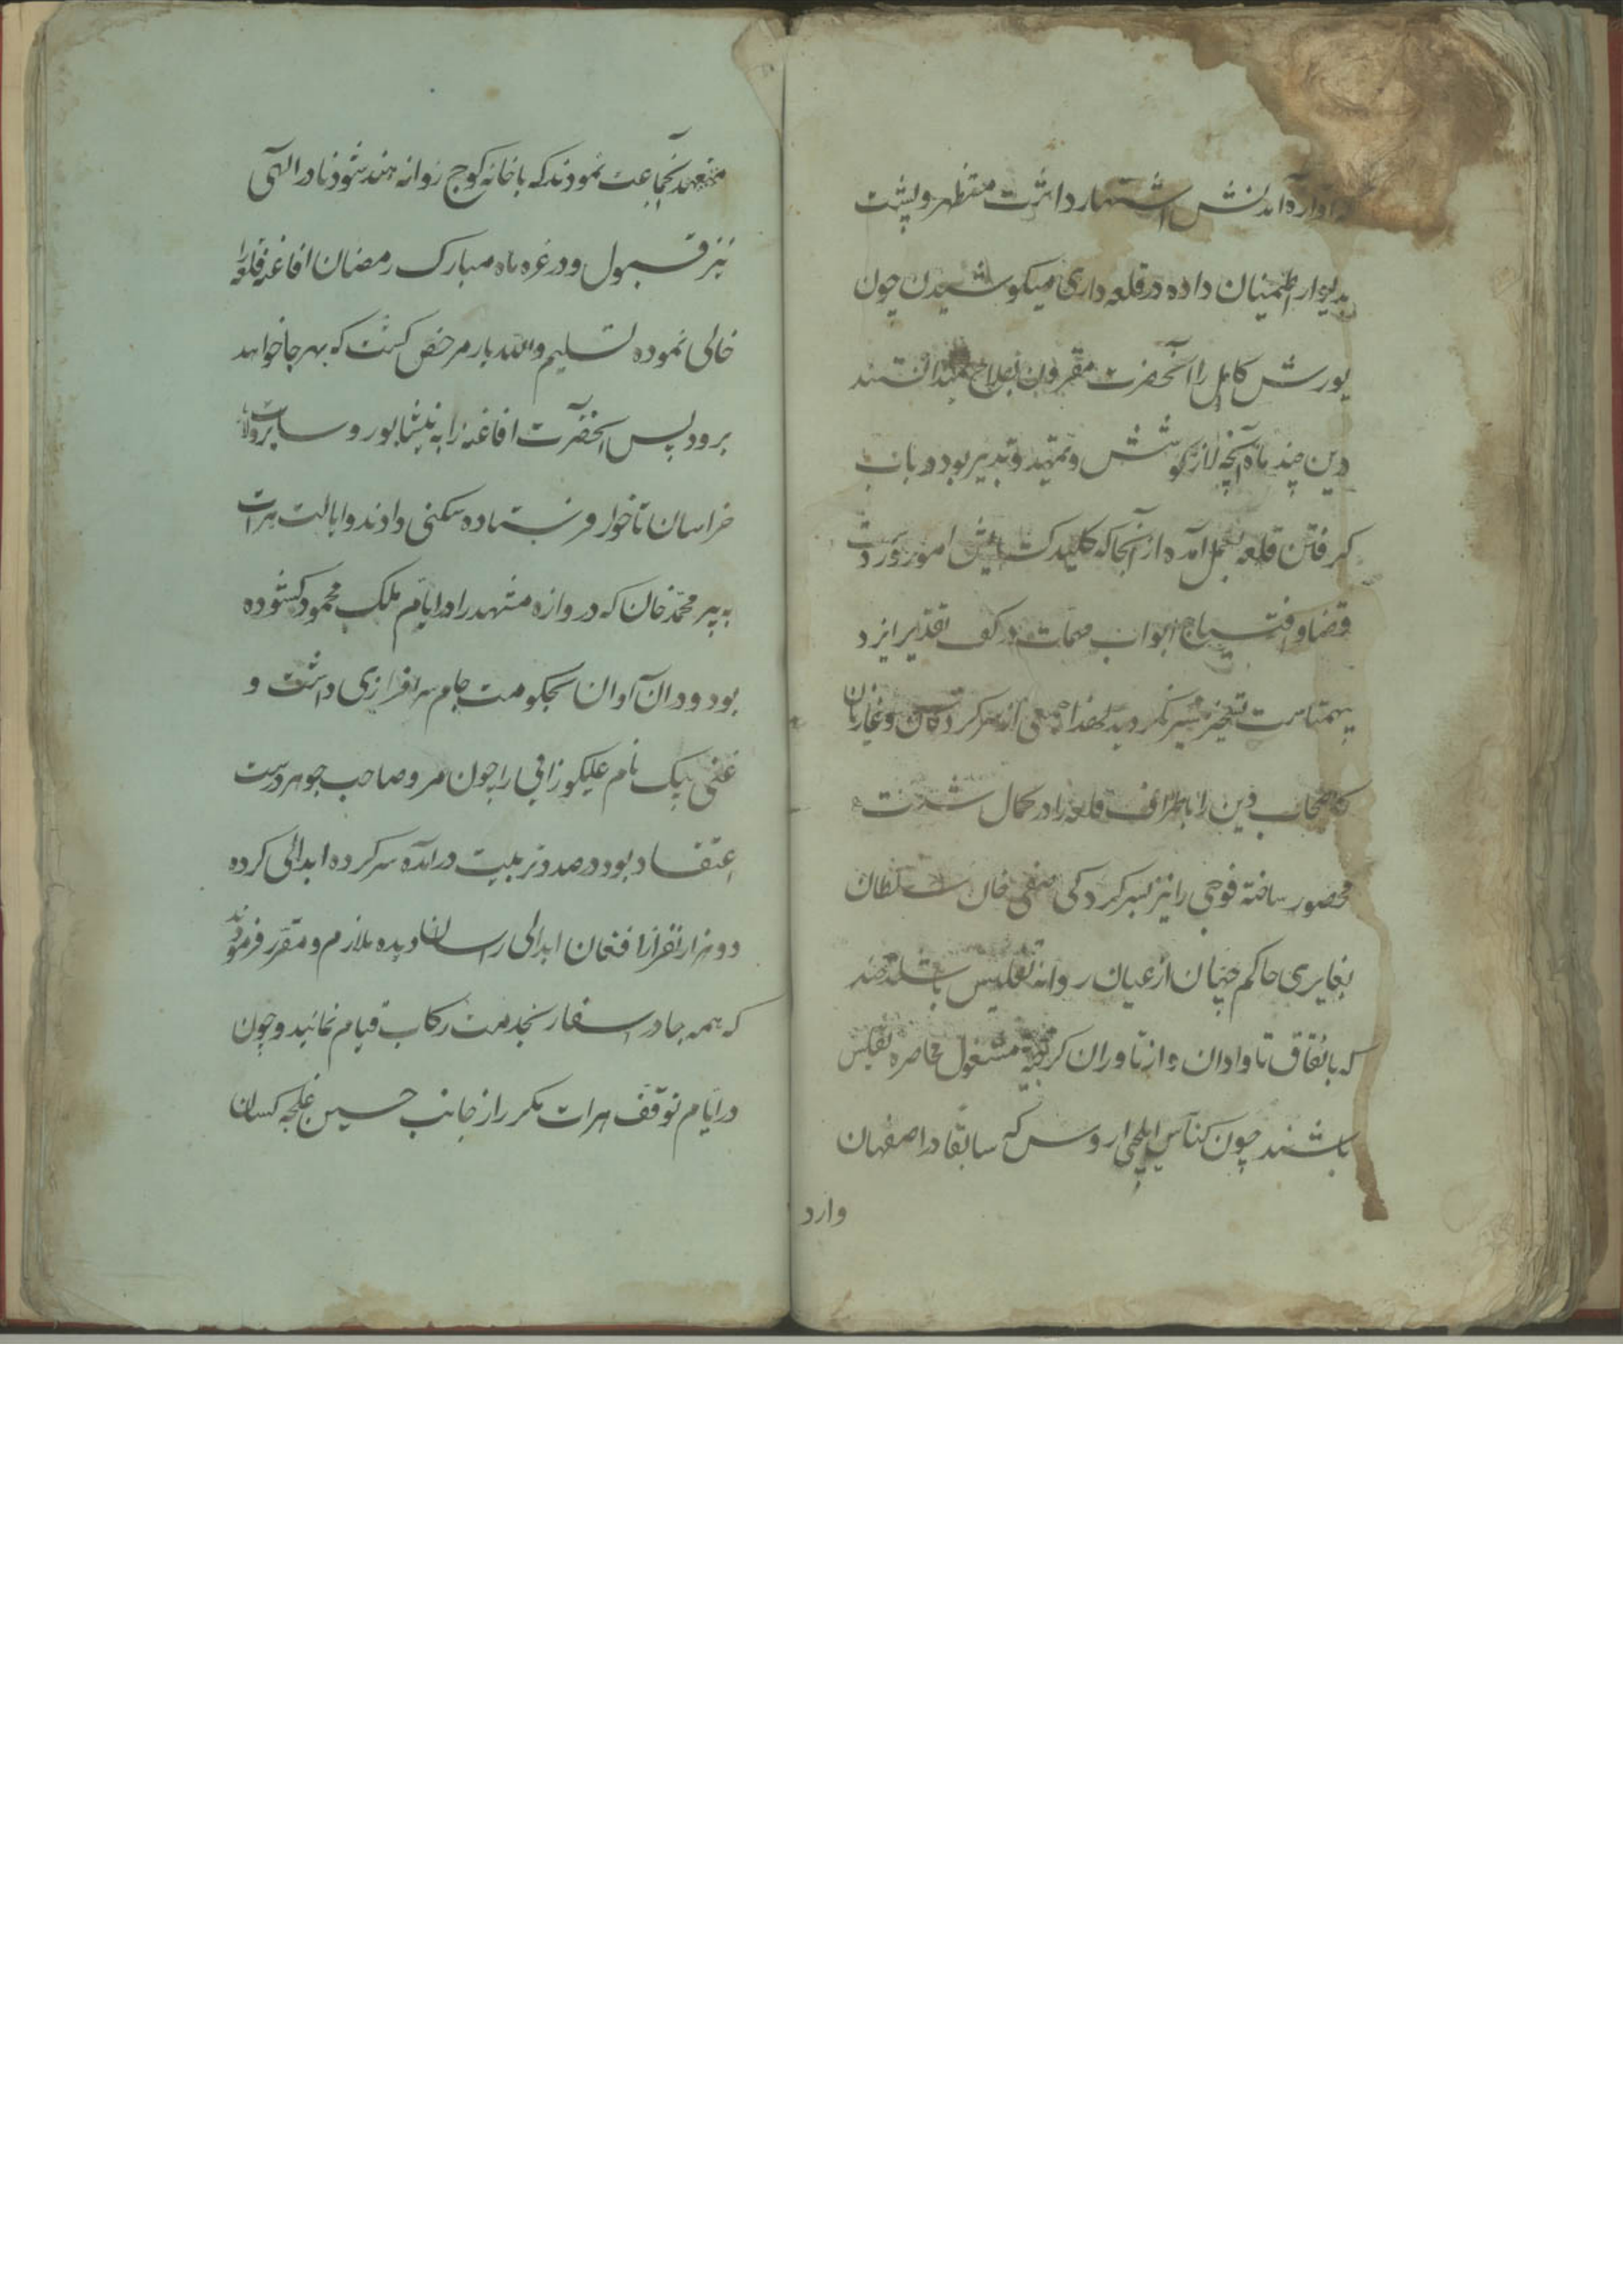 که آوازه آمدنش اشتهار داشت مستظهر و پشت
بدیوار اطمینان داده در قلعه داری میکوشیدن چون
یورش کابل را آنحضرت مقرون بصلاح نمیدانستند
درین چند ماه آنچه لازمه کوشش و تمهید و تدبیر بود در باب
گرفتن قلعه بعمل آمد و از آنجا که کلید گشایش امور در دست
قضا و افتتاح ابواب مهمات در کف تقدیر ایزد
بیهمتاست تسخیر میسر نگردید لهذا جمعی از سرکردگان و غازیان
رکاب دین را باطراف قلعه را در کمال شدت
محصور ساخته فوجی را نیز بسرکردگی صفی خان سلطان
بغایری حاکم از عیان روانه تفلیس باشند
که باتفاق تاوادان و ازناوران کرجیه مشغول محاصره تفلیس
باشند چون کناس ایلچی اروس که سابقا در اصفهان
وارد
متعهد آنجماعت نمودند که با خانه کوچ روانه هند شود نادر الهی
نیز قبول و در غره ماه مبارک رمضان افاغنه قلعه را
خالی نموده تسلیم و الله یار مرخص گشت که بهر جا خواهد
برود پس آنحضرت افاغنه را به نیشابور و سایر ولایات
خراسان تا خوار فرستاده سکنی دادند و ایالت هرات
به پیر محمد خان که دروازه مشهد را در ایام ملک محمود گشوده
بود و در آن آوان بحکومت جام سرافرازی داشت و
غنی بیک نام علیکوزائی را چون مرد صاحب جوهر درست
اعتقاد بود در صدد تربیت در آمده سرکرده ابدالی کرده
دو هزار نفر از افغان ابدالی را سان دیده ملازم و مقرر فرمودند
که همه جا در اسفار بخدمت رکاب قیام نمایند و چون
در ایام توقف هرات مکرر از جانب حسین غلجه کسان